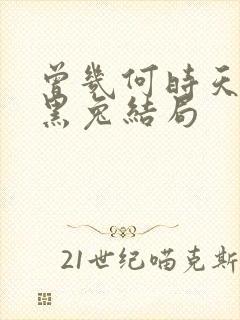 曾幾何時天
黑兔結局
21世纪喵克斯